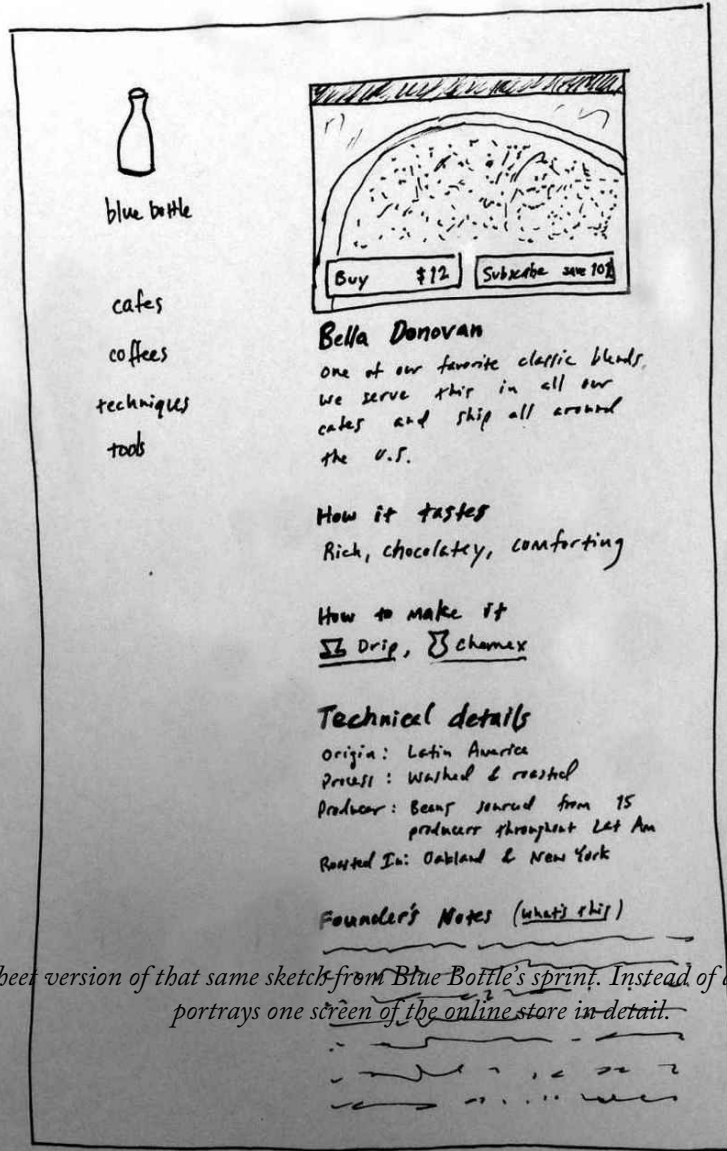 blue bottle
cafes
coffees
techniques
tools
Buy $12
Subscribe save 10%
Bella Donovan
one of our favorite classic blends.
we serve this in all our
cafes and ship all around
the U.S.
How it tastes
Rich, chocolatey, comforting
How to make it
Drip, Chemex
Technical details
Origin: Latin America
Process: Washed & roasted
Producer: Beans sourced from 15
producers throughout Lat Am
Roasted In: Oakland & New York
Founder's Notes (what's this)
version of that same sketch from Blue Bottle's sprint. Instead of
portrays one screen of the online store in detail.